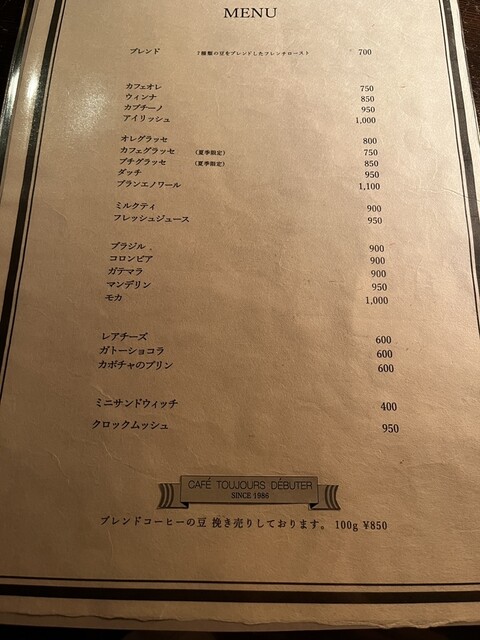 MENU
ブレンド 7種類の豆をブレンドしたフレンチロースト 700
カフェオレ 750
ウィンナ 850
カプチーノ 950
アイリッシュ 1,000
オレグラッセ 800
カフェグラッセ (夏季限定) 750
プチグラッセ (夏季限定) 850
ダッチ 950
ブランエノワール 1,100
ミルクティ 900
フレッシュジュース 950
ブラジル 900
コロンビア 900
ガテマラ 900
マンデリン 950
モカ 1,000
レアチーズ 600
ガトーショコラ 600
カボチャのプリン 600
ミニサンドウィッチ 400
クロックムッシュ 950
CAFÉ TOUJOURS DÉBUTER
SINCE 1986
ブレンドコーヒーの豆 挽き売りしております。 100g ¥850